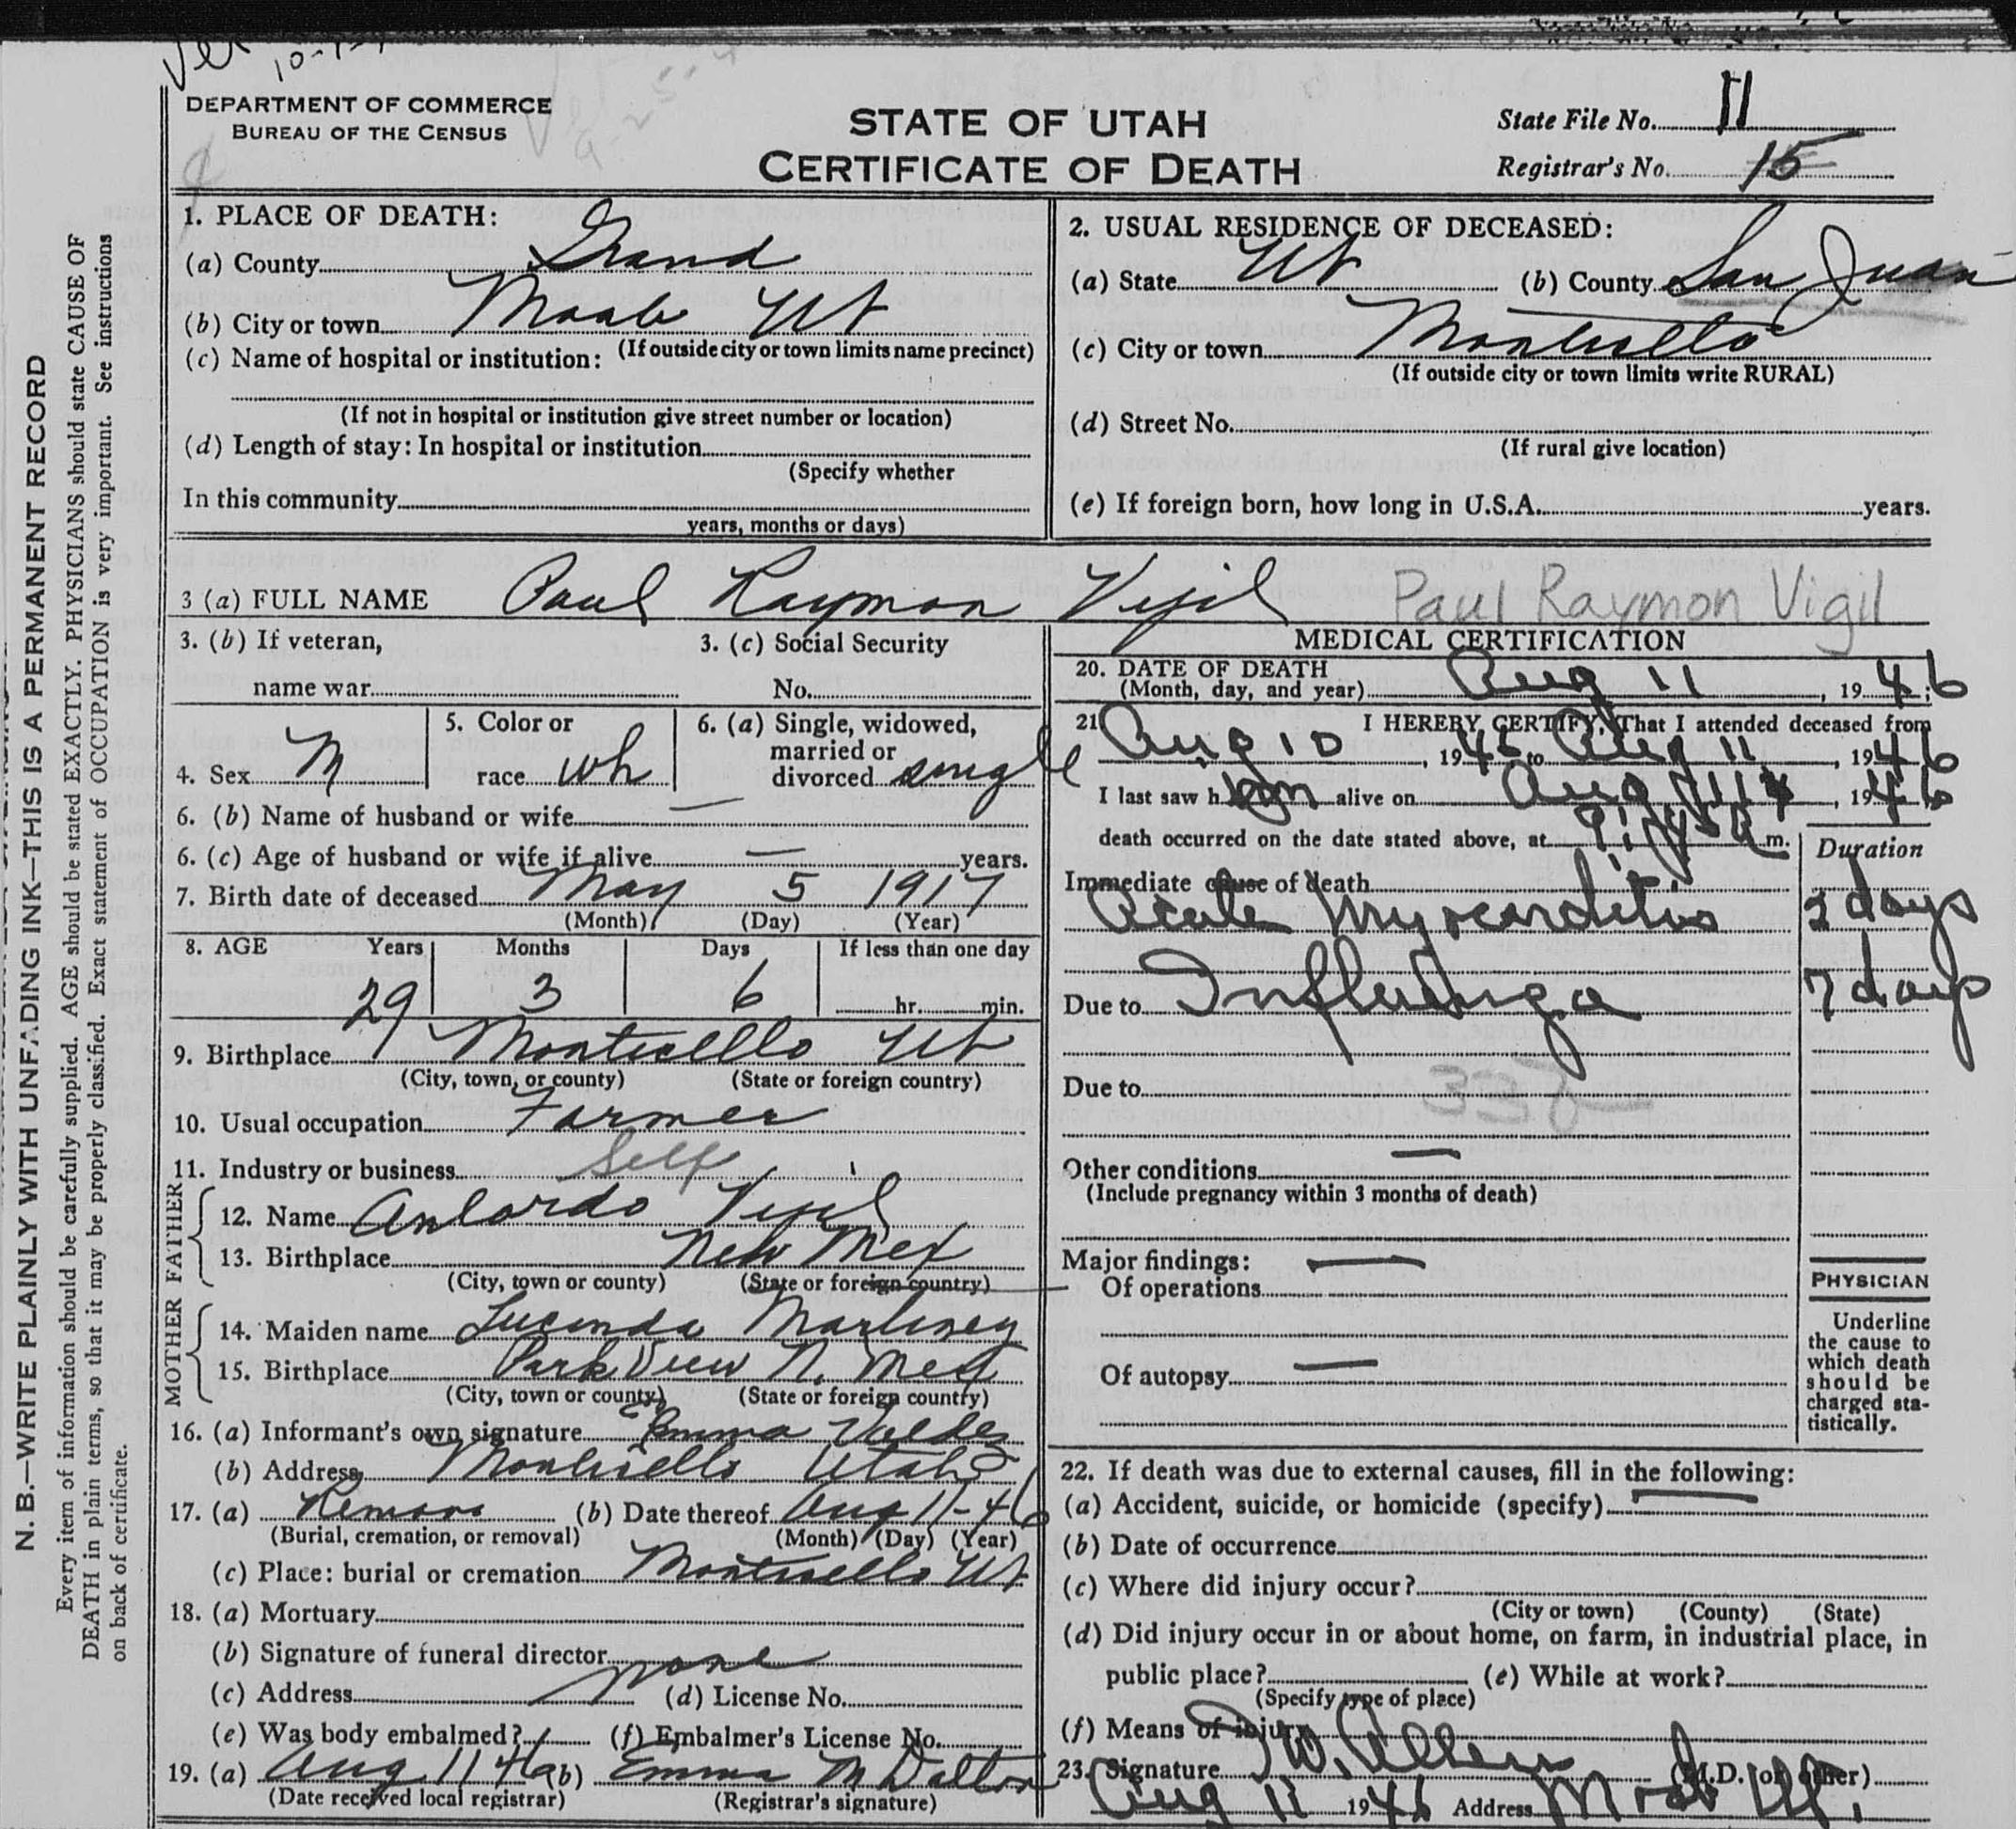 DEPARTMENT OF COMMERCE
BUREAU OF THE CENSUS
STATE OF UTAH
CERTIFICATE OF DEATH
State File No. 11
Registrar's No. 15
1. PLACE OF DEATH:
(a) County Grand
(b) City or town Moab Ut
(If outside city or town limits name precinct)
(c) Name of hospital or institution:
(If not in hospital or institution give street number or location)
(d) Length of stay: In hospital or institution
(Specify whether
In this community
years, months or days)
2. USUAL RESIDENCE OF DECEASED:
(a) State Ut (b) County San Juan
(c) City or town Monticello
(If outside city or town limits write RURAL)
(d) Street No.
(If rural give location)
(e) If foreign born, how long in U.S.A. years.
3 (a) FULL NAME Paul Raymon Vigil Paul Raymon Vigil
3. (b) If veteran,
name war
3. (c) Social Security
No.
4. Sex M
5. Color or
race Wh
6. (a) Single, widowed,
married or
divorced single
6. (b) Name of husband or wife —
6. (c) Age of husband or wife if alive — years.
7. Birth date of deceased May 5 1917
(Month) (Day) (Year)
8. AGE Years Months Days If less than one day
29 3 6 hr. min.
9. Birthplace Monticello Ut
(City, town, or county) (State or foreign country)
10. Usual occupation Farmer
11. Industry or business Self
FATHER
12. Name Vigil
13. Birthplace New Mex
(City, town or county) (State or foreign country)
MOTHER
14. Maiden name Lucinda Martinez
15. Birthplace Park View N. Mex
(City, town or county) (State or foreign country)
16. (a) Informant's own signature Emma Valdez
(b) Address Monticello Utah
17. (a) Remove (b) Date thereof Aug 11-46
(Burial, cremation, or removal) (Month) (Day) (Year)
(c) Place: burial or cremation Monticello Ut
18. (a) Mortuary
(b) Signature of funeral director none
(c) Address (d) License No.
(e) Was body embalmed? (f) Embalmer's License No.
19. (a) Aug 11 46 (b) Emma M Dalton
(Date received local registrar) (Registrar's signature)
MEDICAL CERTIFICATION
20. DATE OF DEATH
(Month, day, and year) Aug 11, 1946
21 I HEREBY CERTIFY, That I attended deceased from
Aug 10, 1946 to Aug 11, 1946
I last saw him alive on Aug 11, 1946
death occurred on the date stated above, at 9:45 A m.
Duration
Immediate cause of death
Acute Myocarditis 2 days
Due to Influenza 7 days
Due to
Other conditions —
(Include pregnancy within 3 months of death)
Major findings: —
Of operations
Of autopsy —
PHYSICIAN
Underline
the cause to
which death
should be
charged sta-
tistically.
22. If death was due to external causes, fill in the following:
(a) Accident, suicide, or homicide (specify) —
(b) Date of occurrence
(c) Where did injury occur?
(City or town) (County) (State)
(d) Did injury occur in or about home, on farm, in industrial place, in
public place? (e) While at work?
(Specify type of place)
(f) Means of injury
23. Signature I W. Allen (M.D. or other)
Aug 11 1946 Address Moab Ut.
N. B.—WRITE PLAINLY WITH UNFADING INK—THIS IS A PERMANENT RECORD
Every item of information should be carefully supplied. AGE should be stated EXACTLY. PHYSICIANS should state CAUSE OF
DEATH in plain terms, so that it may be properly classified. Exact statement of OCCUPATION is very important. See instructions
on back of certificate.